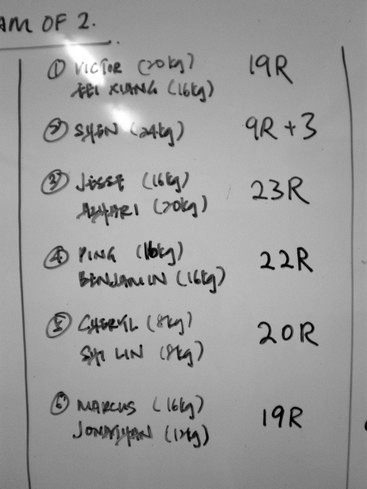 AM OF 2.
① VICTOR (20kg) 19R
FEI XUANG (16kg)
② SHEN (24kg) 9R+3
③ JESSE (16kg) 23R
AZHARI (20kg)
④ PING (16kg) 22R
BENJAMIN (16kg)
⑤ CHERYL (8kg) 20R
SHI LIN (8kg)
⑥ MARCUS (16kg) 19R
JONATHAN (12kg)